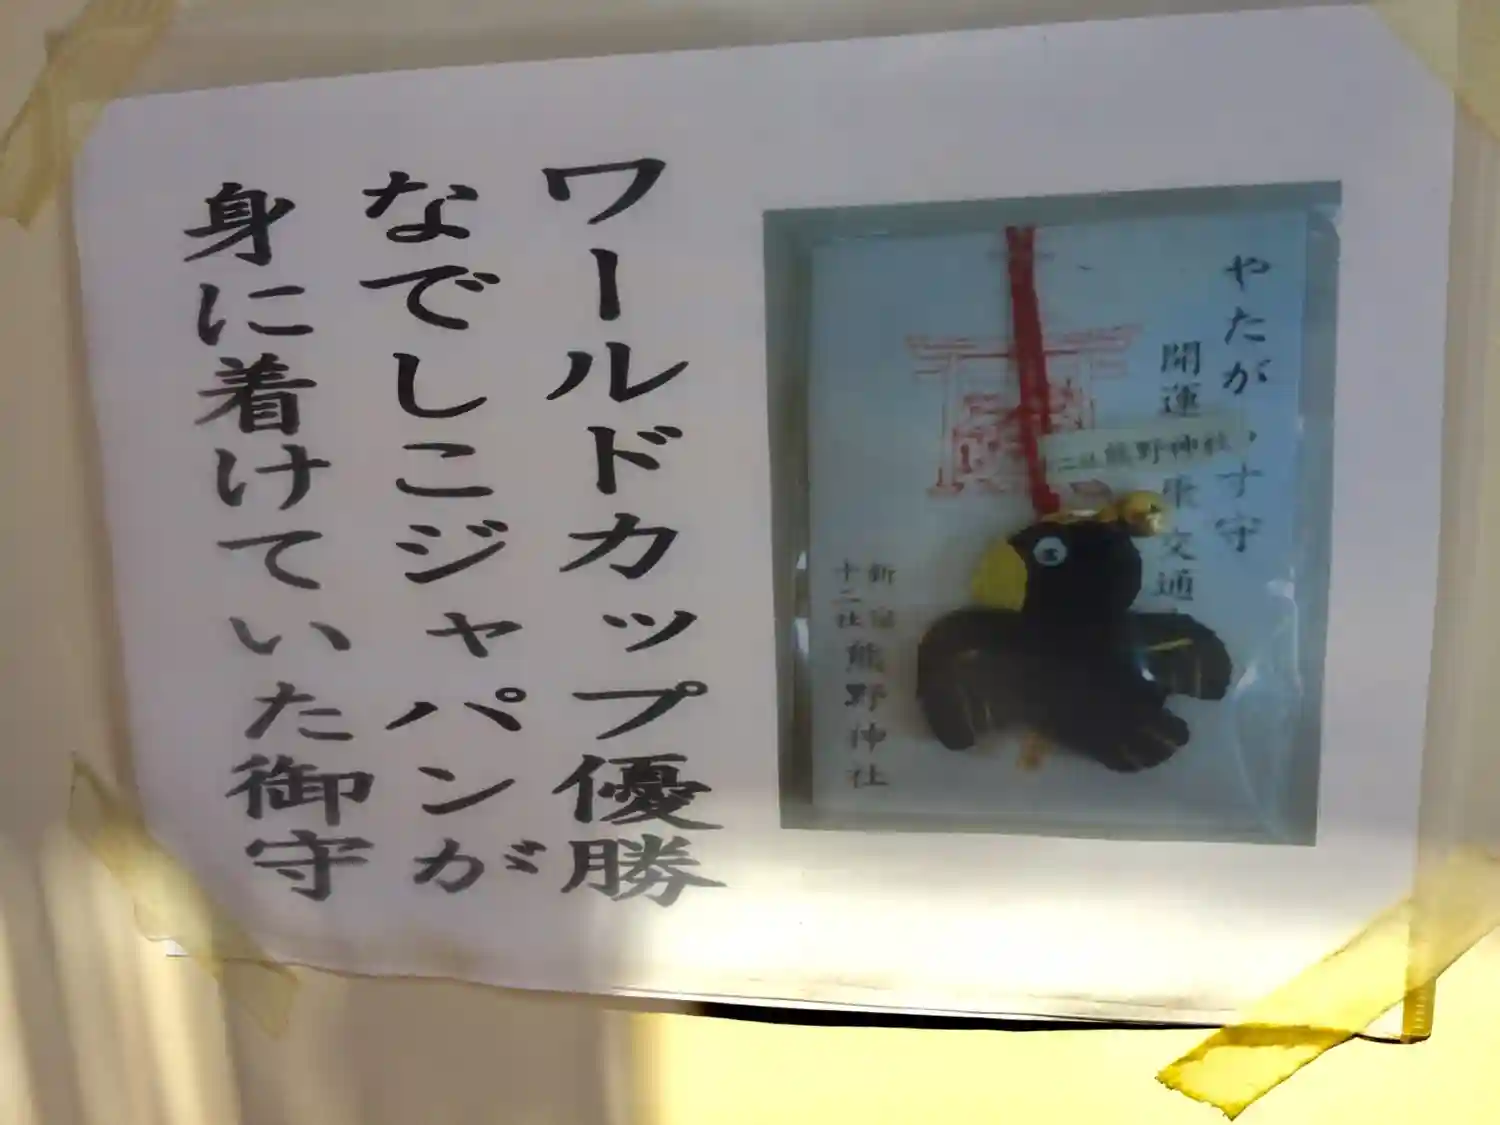 ワールドカップ優勝
なでしこジャパンが
身に着けていた御守
やたが
す守
開運
交通
十二社熊野神社
新宿
十二社
熊野神社